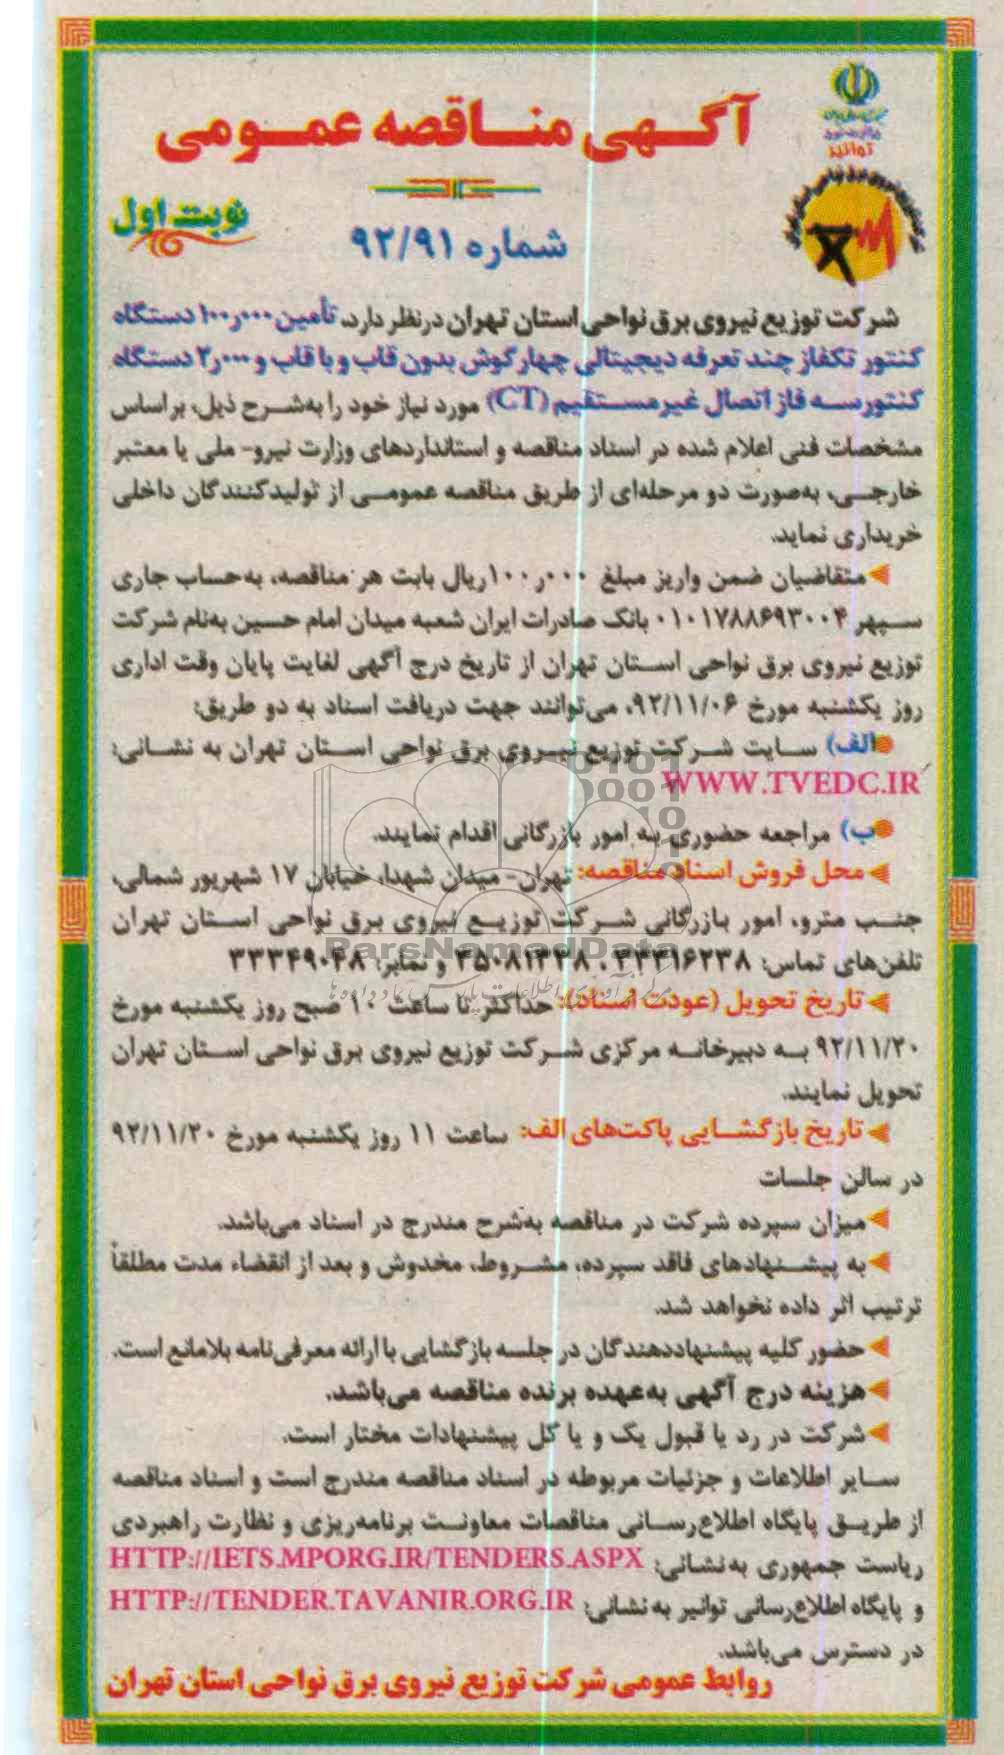 آگهی مناقصه عمومی
توانیر
نوبت اول
شماره ۹۲/۹۱
شرکت توزیع نیروی برق نواحی استان تهران درنظر دارد، تأمین ۱۰۰ر۰۰۰ دستگاه
کنتور تکفاز چند تعرفه دیجیتالی چهارگوش بدون قاب و با قاب و ۲ر۰۰۰ دستگاه
کنتور سه فاز اتصال غیرمستقیم (CT) مورد نیاز خود را به‌شرح ذیل، براساس
مشخصات فنی اعلام شده در اسناد مناقصه و استانداردهای وزارت نیرو- ملی یا معتبر
خارجی، به‌صورت دو مرحله‌ای از طریق مناقصه عمومی از تولیدکنندگان داخلی
خریداری نماید.
متقاضیان ضمن واریز مبلغ ۱۰۰ر۰۰۰ ریال بابت هر مناقصه، به‌حساب جاری
سپهر ۰۱۰۱۷۸۸۶۹۳۰۰۴ بانک صادرات ایران شعبه میدان امام حسین به‌نام شرکت
توزیع نیروی برق نواحی استان تهران از تاریخ درج آگهی لغایت پایان وقت اداری
روز یکشنبه مورخ ۹۲/۱۱/۰۶، می‌توانند جهت دریافت اسناد به دو طریق:
الف) سایت شرکت توزیع نیروی برق نواحی استان تهران به نشانی:
WWW.TVEDC.IR
ب) مراجعه حضوری به امور بازرگانی اقدام نمایند.
محل فروش اسناد مناقصه: تهران- میدان شهدا، خیابان ۱۷ شهریور شمالی،
جنب مترو، امور بازرگانی شرکت توزیع نیروی برق نواحی استان تهران
تلفن‌های تماس: ۳۳۳۱۶۲۳۸ ، ۳۵۰۸۱۳۳۸ و نمابر: ۳۳۳۴۹۰۴۸
ParsNamadData
تاریخ تحویل (عودت اسناد): حداکثر تا ساعت ۱۰ صبح روز یکشنبه مورخ
۹۲/۱۱/۲۰ به دبیرخانه مرکزی شرکت توزیع نیروی برق نواحی استان تهران
تحویل نمایند.
تاریخ بازگشایی پاکت‌های الف: ساعت ۱۱ روز یکشنبه مورخ ۹۲/۱۱/۲۰
در سالن جلسات
میزان سپرده شرکت در مناقصه به‌شرح مندرج در اسناد می‌باشد.
به پیشنهادهای فاقد سپرده، مشروط، مخدوش و بعد از انقضاء مدت مطلقاً
ترتیب اثر داده نخواهد شد.
حضور کلیه پیشنهاددهندگان در جلسه بازگشایی با ارائه معرفی‌نامه بلامانع است.
هزینه درج آگهی به‌عهده برنده مناقصه می‌باشد.
شرکت در رد یا قبول یک و یا کل پیشنهادات مختار است.
سایر اطلاعات و جزئیات مربوطه در اسناد مناقصه مندرج است و اسناد مناقصه
از طریق پایگاه اطلاع‌رسانی مناقصات معاونت برنامه‌ریزی و نظارت راهبردی
ریاست جمهوری به‌نشانی: HTTP://IETS.MPORG.IR/TENDERS.ASPX
و پایگاه اطلاع‌رسانی توانیر به‌نشانی: HTTP://TENDER.TAVANIR.ORG.IR
در دسترس می‌باشد.
روابط عمومی شرکت توزیع نیروی برق نواحی استان تهران